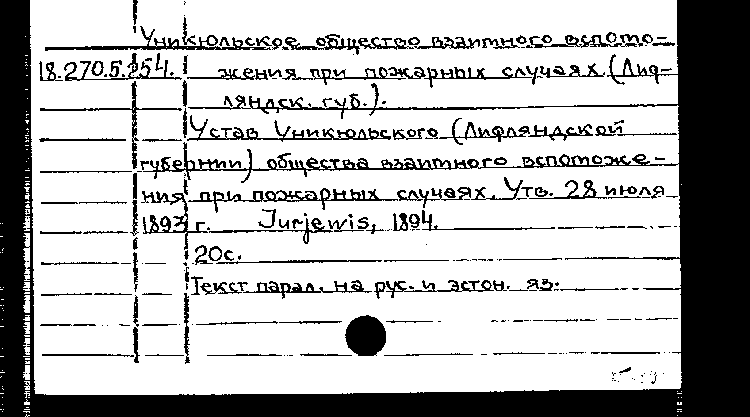 Уникюльское общество взаимного вспомо-
18.270.5.254. жения при пожарных случаях (Лиф-
ляндск. губ.).
Устав Уникюльского (Лифляндской
губернии) общества взаимного вспоможе-
ния при пожарных случаях. Утв. 28 июля
1893 г. Jurjewis, 1894.
20с.
Текст парал. на рус. и эстон. яз.